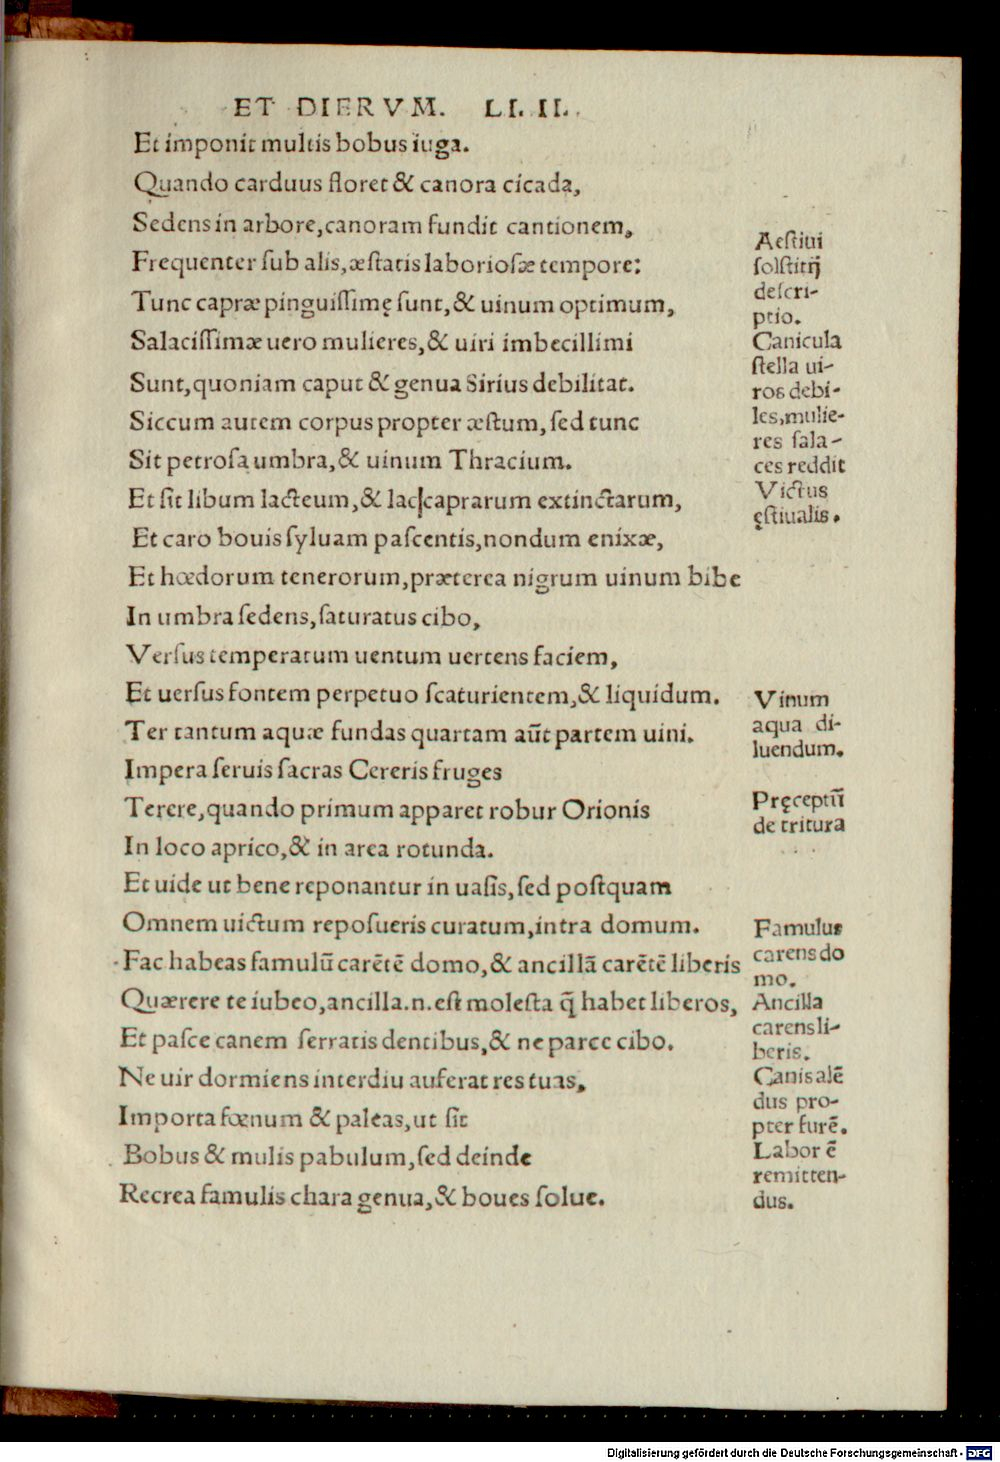 ET DIERVM. LI. II.
Et imponit multis bobus iuga.
Quando carduus floret & canora cicada,
Sedens in arbore,canoram fundit cantionem,
Frequenter ſub alis,æſtatis laborioſæ tempore:
Tunc capræ pinguiſſimę ſunt,& uinum optimum,
Salaciſſimæ uero mulieres,& uiri imbecillimi
Sunt,quoniam caput & genua Sirius debilitat.
Siccum autem corpus propter æſtum,ſed tunc
Sit petroſa umbra,& uinum Thracium.
Et ſit libum lacteum,& lac|caprarum extinctarum,
Et caro bouis ſyluam paſcentis,nondum enixæ,
Et hœdorum tenerorum,præterea nigrum uinum bibe
In umbra ſedens,ſaturatus cibo,
Verſus temperatum uentum uertens faciem,
Et uerſus fontem perpetuo ſcaturientem,& liquidum.
Ter tantum aquæ fundas quartam aūt partem uini.
Impera ſeruis ſacras Cereris fruges
Terere,quando primum apparet robur Orionis
In loco aprico,& in area rotunda.
Et uide ut bene reponantur in uaſis,ſed poſtquam
Omnem uictum repoſueris curatum,intra domum.
Fac habeas famulū carētē domo,& ancillā carētē liberis
Quærere te iubeo,ancilla.n.eſt moleſta q̄ habet liberos,
Et paſce canem ſerratis dentibus,& ne parce cibo.
Ne uir dormiens interdiu auferat res tuas,
Importa fœnum & paleas,ut ſit
Bobus & mulis pabulum,ſed deinde
Recrea famulis chara genua,& boues ſolue.
Aeſtiui
ſolſtitij
deſcri-
ptio.
Canicula
ſtella ui-
ros debi-
les,mulie-
res ſala-
ces reddit
Victus
ęſtiualis.
Vinum
aqua di-
luendum.
Pręceptū
de tritura
Famulus
carens do
mo.
Ancilla
carens li-
beris.
Canis alē
dus pro-
pter furē.
Labor ē
remitten-
dus.
Digitalisierung gefördert durch die Deutsche Forschungsgemeinschaft - DFG